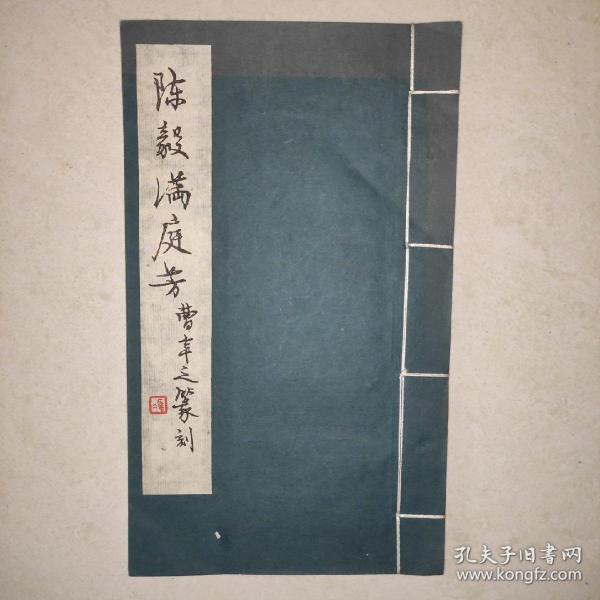 陈毅满庭芳
曹辛之篆刻
孔夫子旧書网
www.kongfz.com